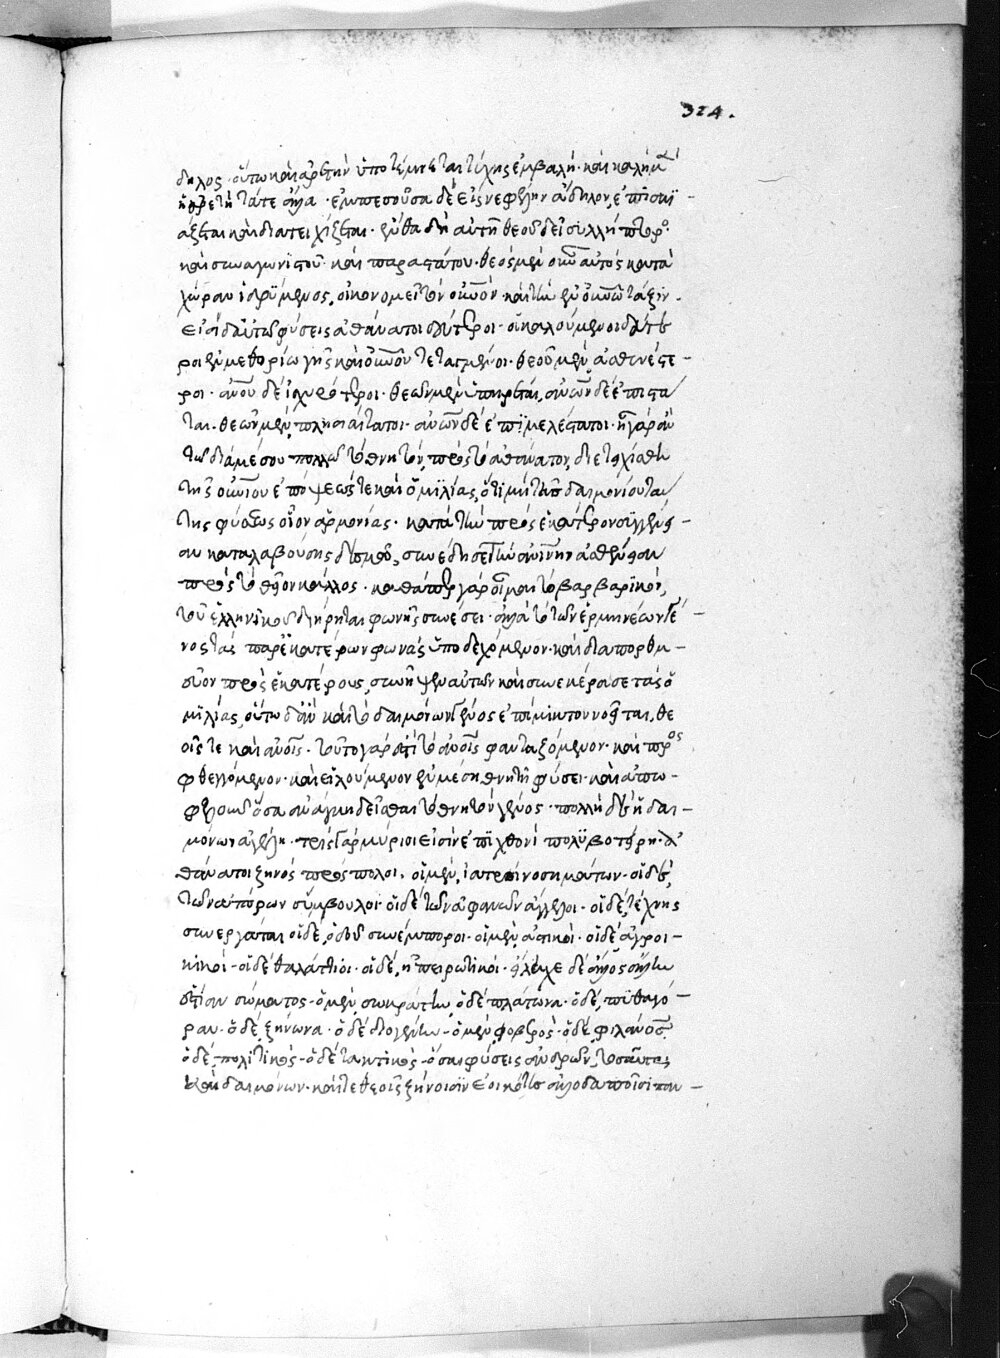 δηλος· οὕτω καὶ ἀρετὴν ὑποτέμνεται τύχης ἐμβολή· καὶ καλὴ μὲν
ἡ ἀρετὴ τά τε ἄλλα· ἐμπεσοῦσα δὲ εἰς νεφέλην ἄδηλον, ἐπισκϊ-
άζεται καὶ διατειχίζεται· ἔνθα δὴ αὐτῇ θεοῦ δεῖ συλλήπτορος
καὶ συναγωνϊστοῦ καὶ παραστάτου· θεὸς μὲν οὖν αὐτὸς κατὰ
χώραν ἱδρϋμένος, οἰκονομεῖ τὸν οὐρανόν· καὶ τὴν ἐν οὐρανῶ τάξιν.
εἰσὶ δ' αὐτῶ φύσεις ἀθάνατοι δεύτεροι· οἱ καλούμενοι δεύτε
ροι ἐν μεθορίω γῆς καὶ οὐρανοῦ τεταγμένοι· θεοῦ μὲν ἀσθενέστε-
ροι· ἀνθρώπου δὲ ἰσχυρότεροι· θεῶν μὲν ὑπηρέται, ἀνθρώπων δὲ ἐπιστά
ται· θεῶν μὲν πλησιαίτατοι· ἀνθρώπων δὲ ἐπϊμελέστατοι· ἦ γὰρ ἂν
τῶ διὰ μέσου πολλῶ τὸ θνητὸν, πρὸς τὸ ἀθάνατον, διετειχίσθη
τῆς οὐρανίου ἐπόψεώς τε καὶ ὁμϊλίας, ὅτι μὴ τῆς δαιμονίου ταύ
της φύσεως οἷον ἁρμονίας· κατὰ τὴν πρὸς ἑκάτερον συγγένει-
αν καταλαβούσης δεσμῶ, συνέδησε τὴν ἀνθρωπίνην ἀσθένειαν
πρὸς τὸ θεῖον κάλλος· καθάπερ γὰρ οἶμαι τὸ βαρβαρϊκὸν,
τοῦ ἑλληνϊκοῦ διήρηται φωνῆς συνέσει· ἀλλὰ τὸ τῶν ἑρμηνέων γέ-
νος τὰς παρ' ἑκατέρων φωνὰς ὑποδεχόμενον· καὶ διαπορθμ-
εῦον πρὸς ἑκατέρους, συνῆψεν αὐτῶν καὶ συνεκέρασε τὰς ὁ
μϊλίας, οὕτω δ' ἂν καὶ τὸ δαιμόνων γένος ἐπίμικτον νοεῖται, θε
οῖς τε καὶ ἀνθρώποις· τοῦτο γάρ ἐστι τὸ ἀνθρώποις φανταζόμενον· καὶ προς
φθεγγόμενον· καὶ εἱλούμενον ἐν μέση θνητῆ φύσει· καὶ ἐπω-
φελοῦν ὅσα ἀνάγκη δεῖσθαι τὸ θνητῶν γένος· πολλὴ δὲ ἡ δαι-
μόνων ἀγέλη· τρὶς γὰρ μύριοι εἰσὶν ἐπϊ χθονὶ πολϋβοτείρη ἀ-
θάνατοι ζηνὸς πρόσπολοι· οἱ μὲν, ἰατροὶ νοσημάτων· οἱ δὲ,
τῶν ἀπόρων σύμβουλοι· οἱ δὲ τῶν ἀφανῶν ἄγγελοι· οἱ δὲ, τέχνης
συνεργάται οἱ δὲ, ὁδοῦ συνέμποροι· οἱ μὲν, ἀστικοὶ· οἱ δὲ, ἀγροι-
κικοὶ· οἱ δὲ θαλάττιοι· οἱ δὲ, ἠπειρωτικοὶ· εἴληχε δὲ ἄλλος ἄλλην
ἑστίαν σώματος· ὁ μὲν, σωκράτην, ὁ δὲ πλάτωνα· ὁ δὲ, πυθαγό-
ραν· ὁ δὲ, ζήνωνα· ὁ δὲ διογένην· ὁ μὲν, φοβερὸς· ὁ δὲ, φιλάνθρωπος
ὁ δὲ, πολιτικὸς· ὁ δὲ τακτικὸς· ὅσαι φύσεις ἀνδρῶν, τοσαῦται
καὶ δαιμόνων· καί τε θεοῖς ξείνοισϊν ἐοικότες ἀλλοδαποῖσι παν-